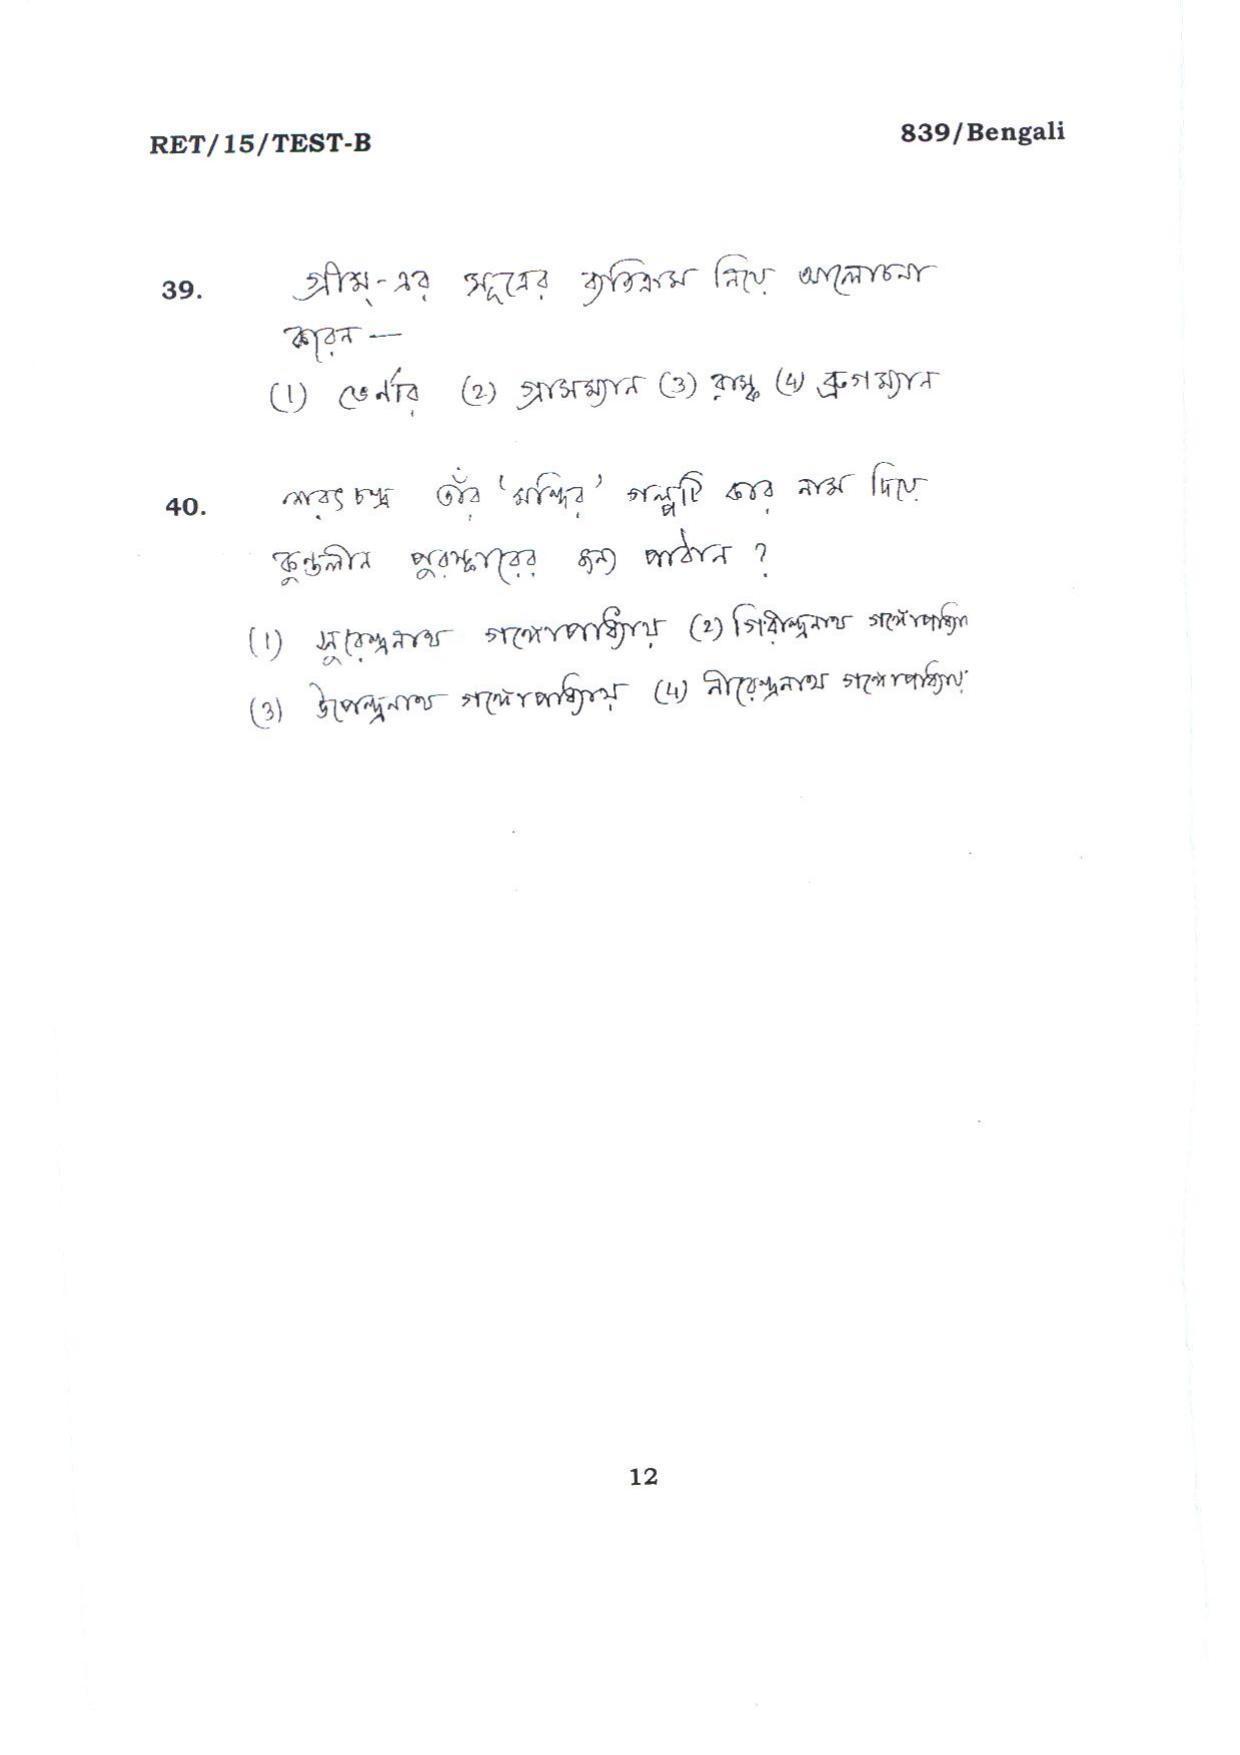 RET/15/TEST-B
839/Bengali
39. গ্রীম্-এর সূত্রের ব্যতিক্রম নিয়ে আলোচনা
করেন —
(1) ভের্নার (2) গ্রাসম্যান (3) রাস্ক (4) ব্রুগম্যান
40. শরৎচন্দ্র তাঁর 'মন্দির' গল্পটি কার নাম দিয়ে
কুন্তলীন পুরস্কারের জন্য পাঠান ?
(1) সুরেন্দ্রনাথ গঙ্গোপাধ্যায় (2) গিরীন্দ্রনাথ গঙ্গোপাধ্যায়
(3) উপেন্দ্রনাথ গঙ্গোপাধ্যায় (4) নীরেন্দ্রনাথ গঙ্গোপাধ্যায়
12